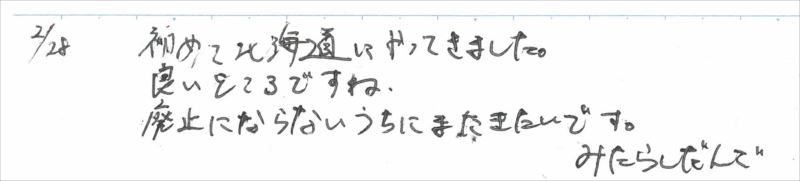 2/28 初めて北海道にやってきました。
良いところですね.
廃止にならないうちにまたきたいです。
みたらしだんご